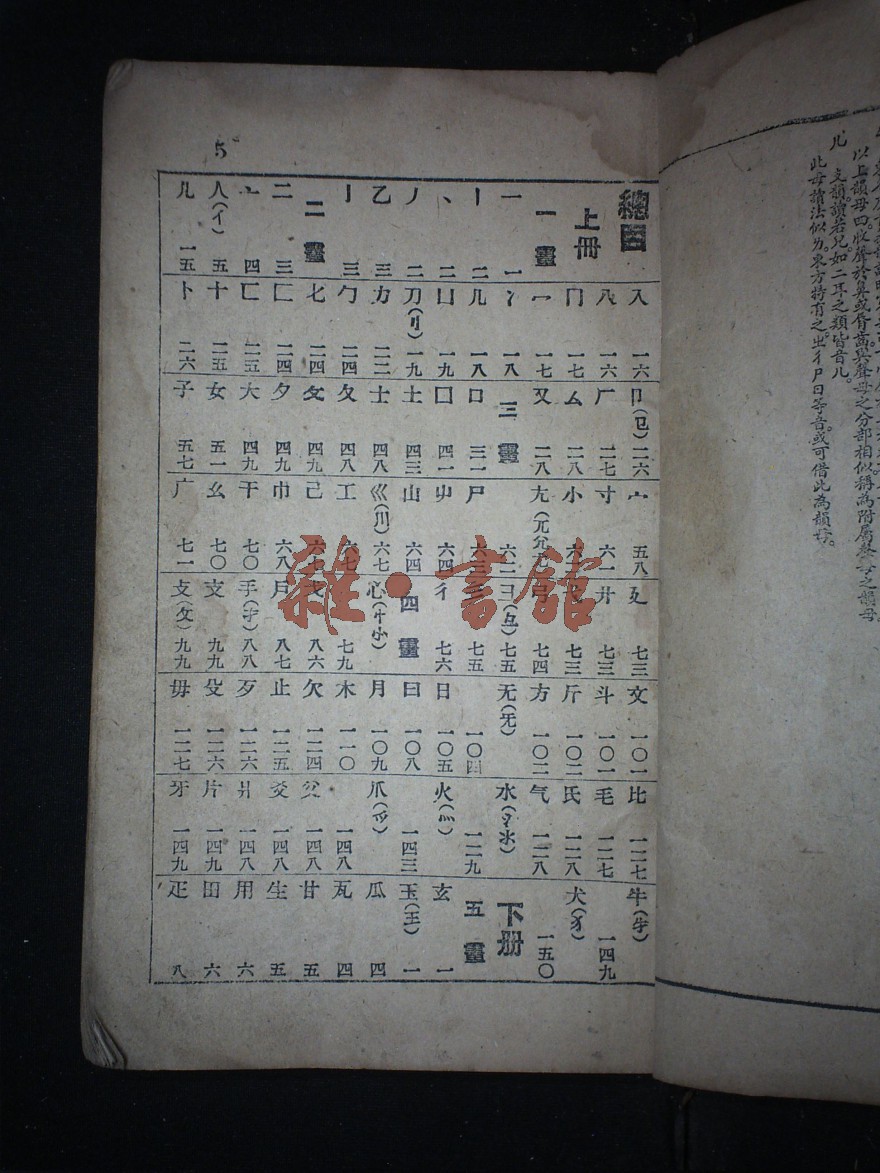 以上韻母四。收聲於鼻或脣齒。與聲母之分部相似。稱為附屬聲母之韻母
ㄦ 支韻。讀若兒。如二耳之類皆音ㄦ。
此母讀法似ㄌ。東方特有之。ㄓㄔㄕㄖ等音。或可借此為韻母。
5
總目
上冊
一畫
一 一
丨 二
丶 二
丿 二
乙 三
亅 三
二畫
二 三
亠 四
人(亻) 五
儿 一五
入 一六
八 一六
冂 一七
冖 一七
冫 一八
几 一八
凵 一九
刀(刂) 一九
力 二二
勹 二四
匕 二四
匚 二四
匸 二五
十 二五
卜 二六
卩(㔾) 二六
厂 二七
厶 二八
又 二八
三畫
口 三一
囗 四一
土 四三
士 四八
夂 四八
夊 四九
夕 四九
大 四九
女 五一
子 五七
宀 五八
寸 六一
小 六二
尢(兀尣尤) 六二
尸 六三
屮 六四
山 六四
巛(川) 六七
工 六七
己 六七
巾 六八
干 七〇
幺 七〇
广 七一
廴 七三
廾 七三
弋 七三
弓 七四
彐(彑) 七五
彡 七五
彳 七六
四畫
心(忄㣺) 七九
戈 八六
戶 八七
手(扌) 八八
支 九九
攴(攵) 九九
文 一〇一
斗 一〇一
斤 一〇二
方 一〇二
无(旡) 一〇四
日 一〇五
曰 一〇八
月 一〇九
木 一一〇
欠 一二四
止 一二五
歹 一二六
殳 一二六
毋 一二七
比 一二七
毛 一二七
氏 一二八
气 一二八
水(氵氺) 一二九
火(灬) 一四三
爪(爫) 一四八
父 一四八
爻 一四八
爿 一四八
片 一四九
牙 一四九
牛(牜) 一四九
犬(犭) 一五〇
下册
五畫
玄 一
玉(王) 一
瓜 四
瓦 四
甘 五
生 五
用 六
田 六
疋 八
雜·書館